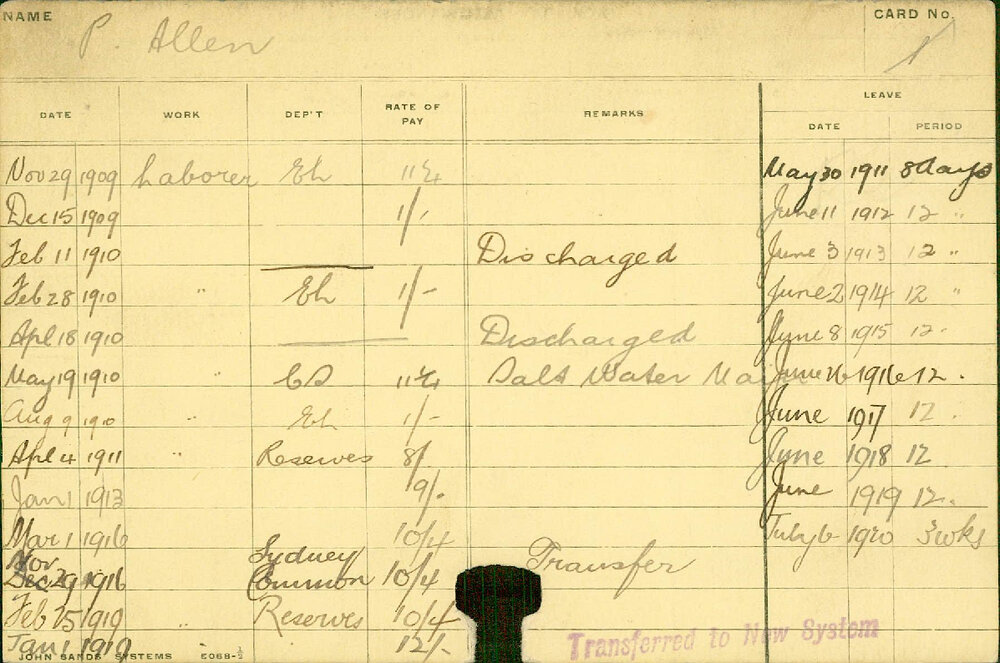 NAME P. Allen CARD No. 1
LEAVE
DATE WORK DEP'T RATE OF PAY REMARKS DATE PERIOD
Nov 29 1909 Laborer Eh 11¼ May 30 1911 8 days
Dec 15 1909 1/- June 11 1912 12 "
Feb 11 1910 Discharged June 3 1913 12 "
Feb 28 1910 " Eh 1/- June 2 1914 12 "
Apl 18 1910 Discharged June 8 1915 12 .
May 19 1910 " 11¼ Salt Water June 1916 12 .
Aug 9 1910 " Eh 1/- June 1917 12 .
Apl 4 1911 " Reserves 8/ June 1918 12
Jan 1 1913 9/. June 1919 12 .
Mar 1 1916 10/4 July 6 1920 3 wks
Nov
Dec 29 1916 Sydney Common 10/4 Transfer
Feb 25 1919 " Reserves 10/4
Jan 1 1919 12/-
Transferred to New System
JOHN SANDS SYSTEMS 5068-½